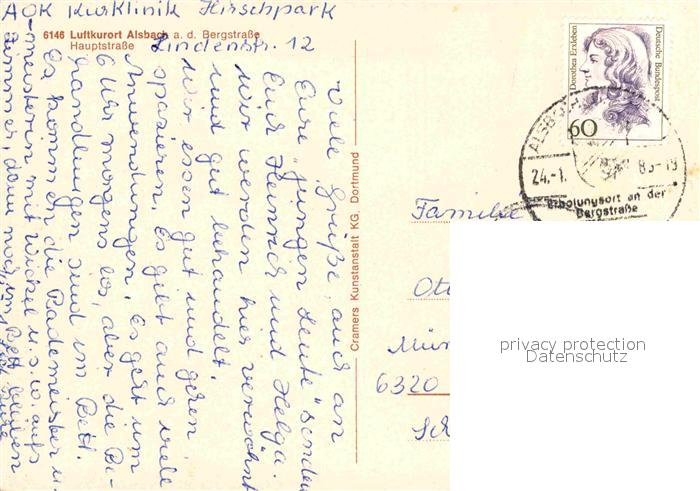 AOK Kurklinik Hirschpark
6146 Luftkurort Alsbach a. d. Bergstraße
Hauptstraße
Lindenstr. 12
Viele Grüße, auch an
Eure "jungen Leute" senden
Euch Heinrich und Helga.
Wir werden hier verwöhnt
und gut behandelt.
Wir essen gut und gehen
spazieren. Es gibt auch viele
Anwendungen. Es geht um
6 Uhr morgens los, aber die Be-
handlungen sind im Bett.
Es kommen die Bademeister u.
-meisterin mit Wickel u.s.w. aufs
Zimmer, dann noch im Bett bleiben
Cramers Kunstanstalt KG. Dortmund
Dorothea Erxleben
Deutsche Bundespost
60
ALSB
24.-1.
Erholungsort an der
Bergstraße
Familie
Ott
Mün
6320
privacy protection
Datenschutz